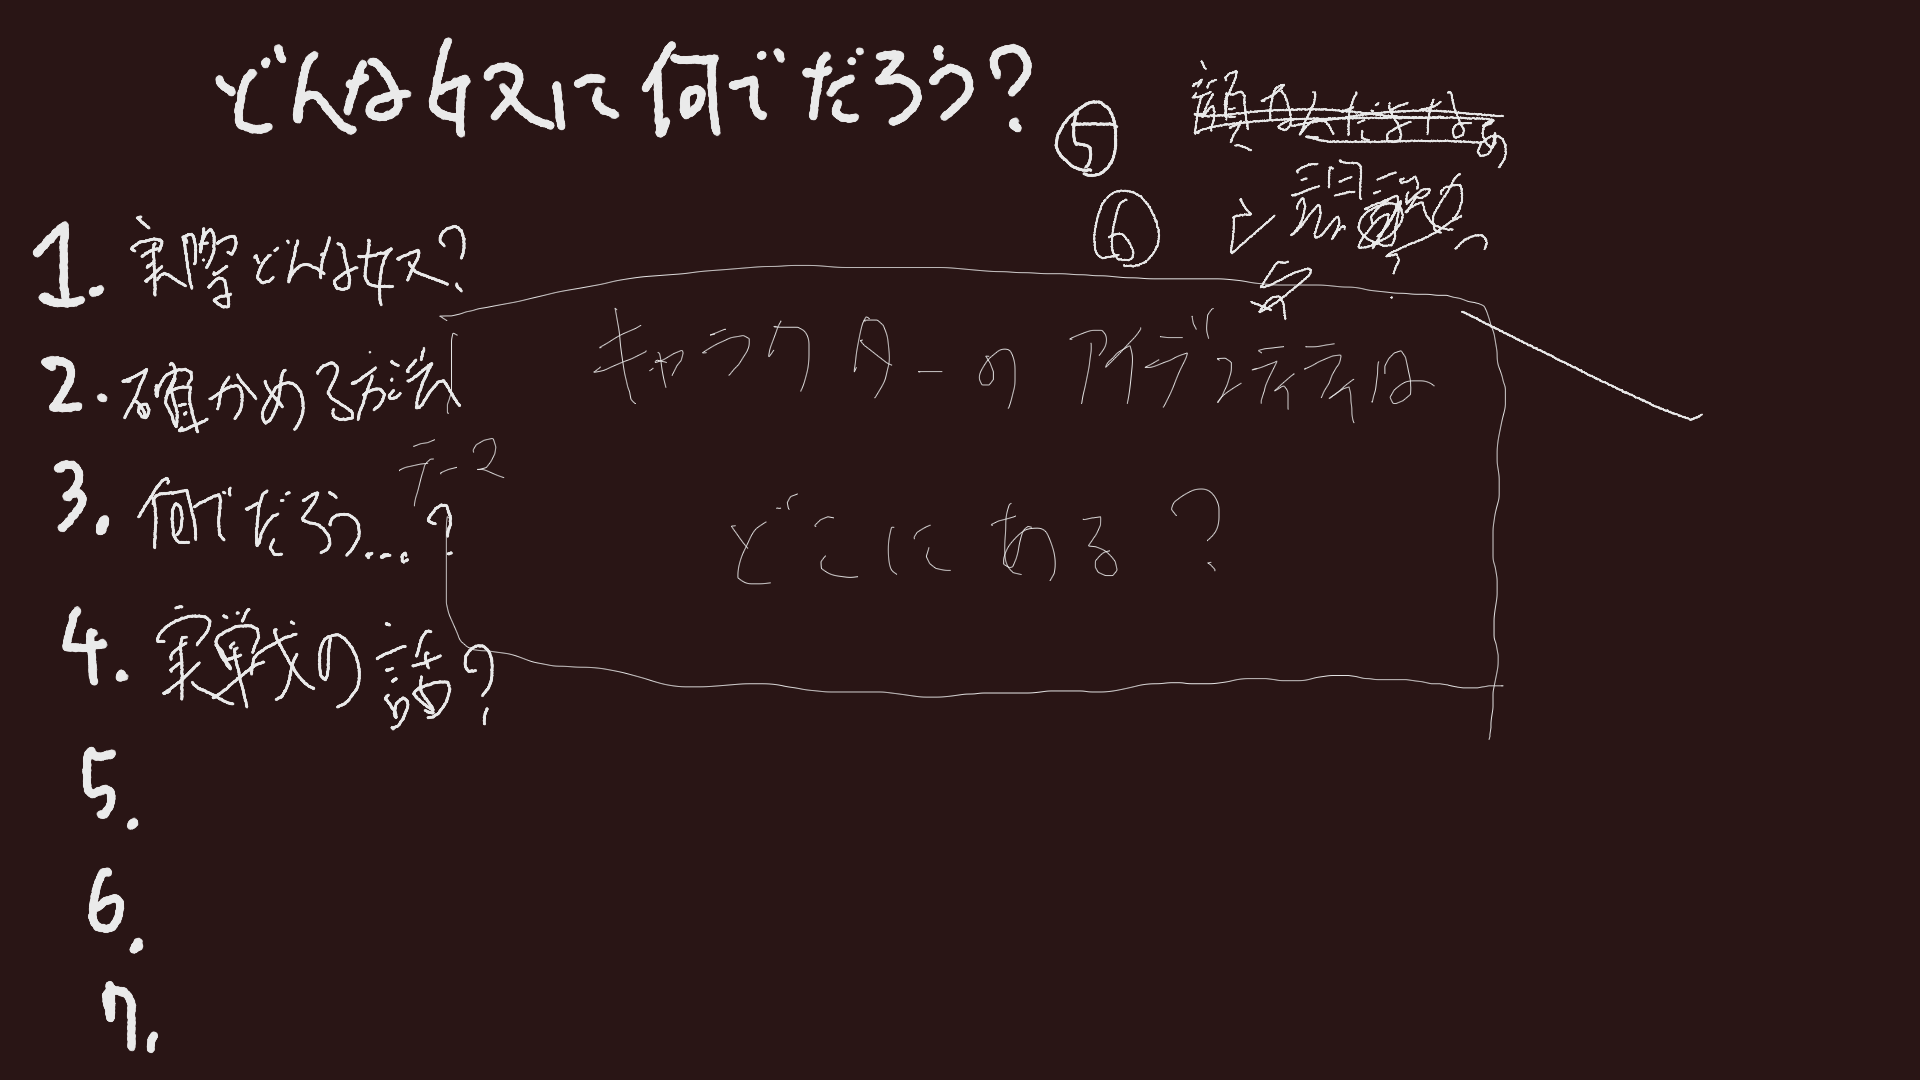 どんな奴に何でだろう?
⑤
⑥
1. 実際どんな奴?
2. 確かめる方法
3. 何でだろう...?
テーマ
4. 実戦の話?
5.
6.
7.
キャラクターのアイデンティティは
どこにある?